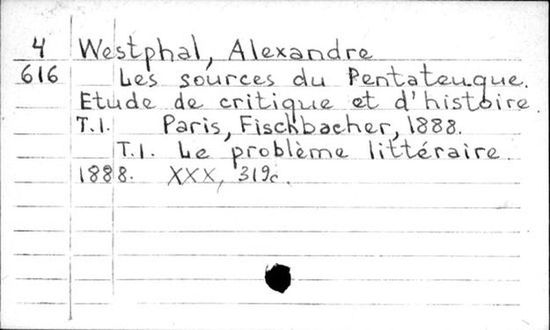 4 Westphal, Alexandre
616 Les sources du Pentateuque.
Etude de critique et d'histoire.
T.1. Paris, Fischbacher, 1888.
T.1. Le problème littéraire.
1888. XXX, 319c.